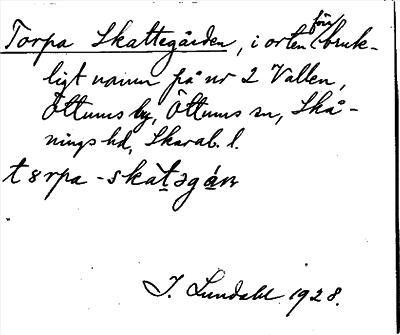 Torpa Skattegården, i orten förr bruk-
ligt namn på nr 2 Vallen,
Öttums by, Öttums sn, Skå-
nings hd, Skarab. l.
tørpa-skat̲əgán
I. Lundahl 1928.